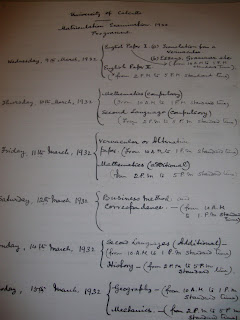 University of Calcutta
Matriculation Examination 1932
Programme
Wednesday, 9th March, 1932
English Paper I (a) Translation from a
Vernacular
(b) Essay, Grammar etc
(from 10 A.M. to 1 P.M.
English Paper II
(from 2 P.M. to 5 P.M. Standard time)
Thursday, 10th March, 1932
Mathematics (Compulsory)
(from 10 A.M. to 1 P.M. Standard time)
Second Language (Compulsory)
(from 2 P.M. to 5 P.M. Standard time)
Friday, 11th March, 1932
Vernacular or Alternative
Paper (from 10 A.M. to 1 P.M. Standard time)
Mathematics (additional)
(from 2 P.M. to 5 P.M. Standard time)
Saturday, 12th March, 1932
Business Method and
Correspondence — (from 10 A.M.
to 1 P.M. Standard time)
nday, 14th March, 1932
Second Languages (Additional) —
(from 10 A.M. to 1 P.M. Standard time)
History — (from 2 P.M. to 5 P.M.
Standard time)
day, 15th March, 1932
Geography — (from 10 A.M. to 1 P.M.
Standard time)
Mechanics — (from 2 P.M. to 5 P.M.
Standard time)